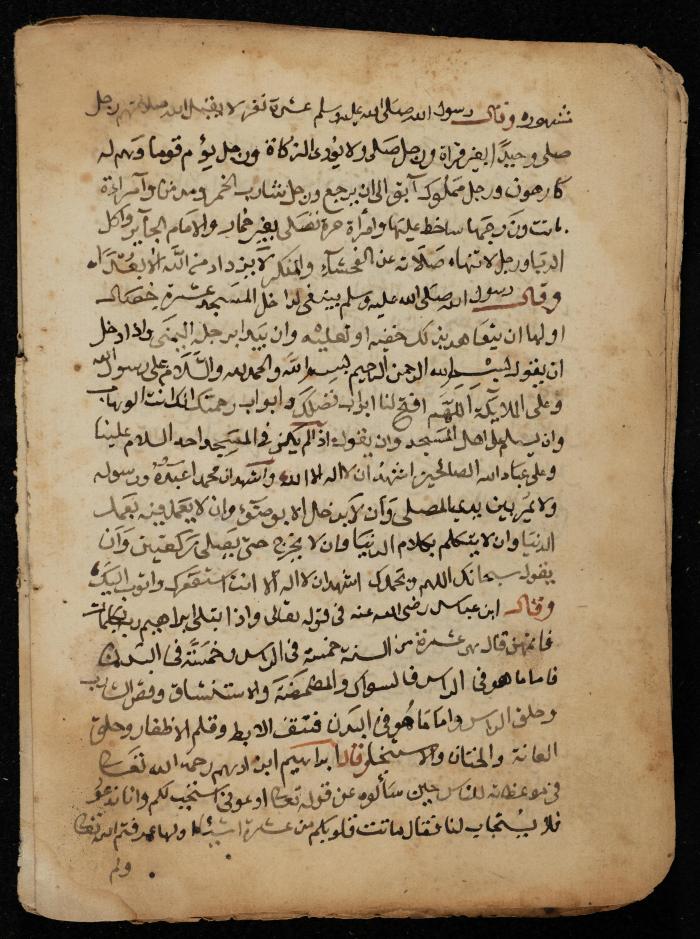 مشهورة وقال رسول الله صلى الله عليه وسلم عشرة نفر لا يقبل الله صلاتهم رجل
صلى وحيدا بغير قراة ورجل صلى ولا يؤدى الزكاة ورجل يؤم قوما وهم له
كارهون ورجل مملوك آبق الى ان يرجع ورجل شارب الخمر ومدمنا وامراءة
باتت وزوجها ساخط عليها وامرأة حرة تصلى بغير خمار والامام الجآير واكل
الربا ورجل لا تنهاه صلاته عن الفحشآء والمنكر لا يزداد من الله الا بعدا
وقال رسول الله صلى الله عليه وسلم ينبغى لداخل المسجد عشرة خصال
اولها ان يتعاهد بذلك خفيه او نعليه وان يبدا برجله اليمنى واذا دخل
ان يقول بسم الله الرحمن الرحيم بسم الله والحمد لله والسلام على رسول الله
وعلى الملايكة اللهم افتح لنا ابواب فضلك وابواب رحمتك انك انت الوهاب
وان يسلم على اهل المسجد وان يقول اذا لم يكن فى المسجد احد السلام علينا
وعلى عباد الله الصالحين اشهد ان لا اله الا الله واشهد ان محمدا عبده ورسوله
ولا يمر بين يدى المصلى وان لا يدخل الا بوضوء وان لا يعمل فيه بعمل
الدنيا وان لا يتكلم بكلام الدنيا وان لا يخرج حتى يصلى ركعتين وان
يقول سبحانك اللهم وبحمدك اشهد ان لا اله الا انت استغفرك واتوب اليك
وقال ابن عباس رضى الله عنه فى قوله تعالى واذا ابتلى ابراهيم ربه بكلمات
فاتمهن قال هى عشرة من السنة خمسة فى الراس وخمسة فى البدن
فاما ما هو فى الراس فالسواك والمضمضة والاستنشاق وقص الشارب
وحلق الراس واما ما هو فى البدن فنتف الابط وقلم الاظفار وحلق
العانة والختان والاستنجا وقال ابراهيم ابن ادهم رحمه الله تعالى
فى موعظته للناس حين سألوه عن قوله تعالى ادعونى استجب لكم وانا ندعو
فلا يستجاب لنا فقال ماتت قلوبكم من عشرة اشيآء اولها عرفتم الله تعالى
ولم